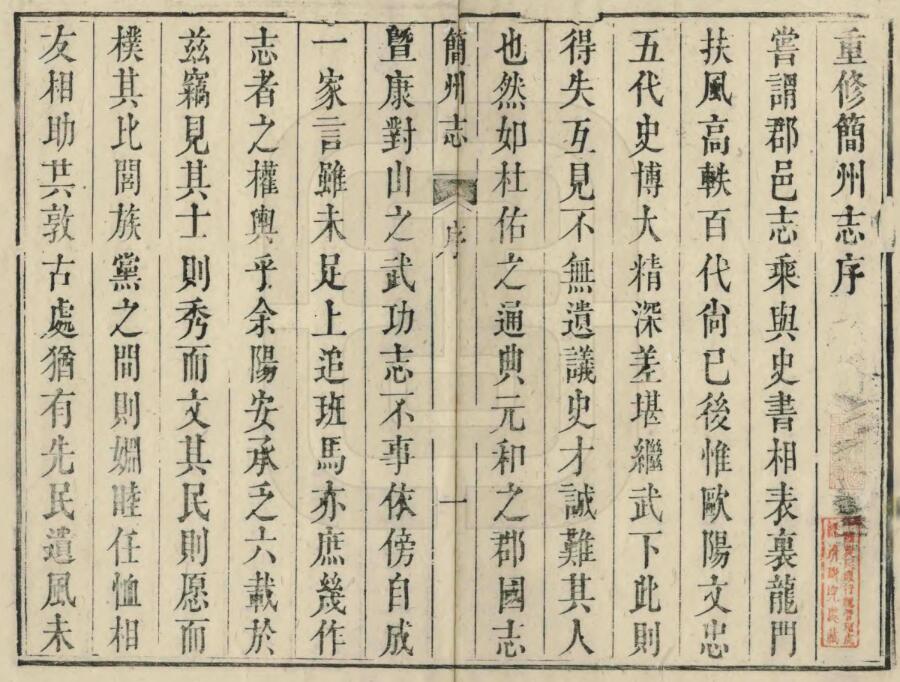 重修簡州志序
嘗謂郡邑志乘與史書相表裏龍門
扶風高軼百代尙已後惟歐陽文忠
五代史博大精深差堪繼武下此則
得失互見不無遺議史才誠難其人
也然如杜佑之通典元和之郡國志
簡州志 序 一
暨康對山之武功志不事依傍自成
一家言雖未足上追班馬亦庶幾作
志者之權輿乎余陽安承乏六載於
兹竊見其士則秀而文其民則愿而
樸其比閭族黨之間則婣睦任恤相
友相助其敦古處猶有先民遺風未